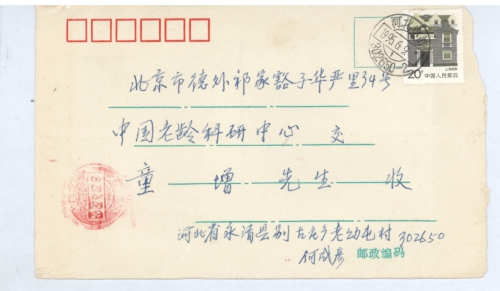 北京市德外祁家豁子华严里34号
中国老龄科研中心 交
童增先生 收
河北省永清县别古庄乡老幼屯村 302650
何成彦
邮政编码
河北
1995.6.2
302650-2
20分
中国人民邮政